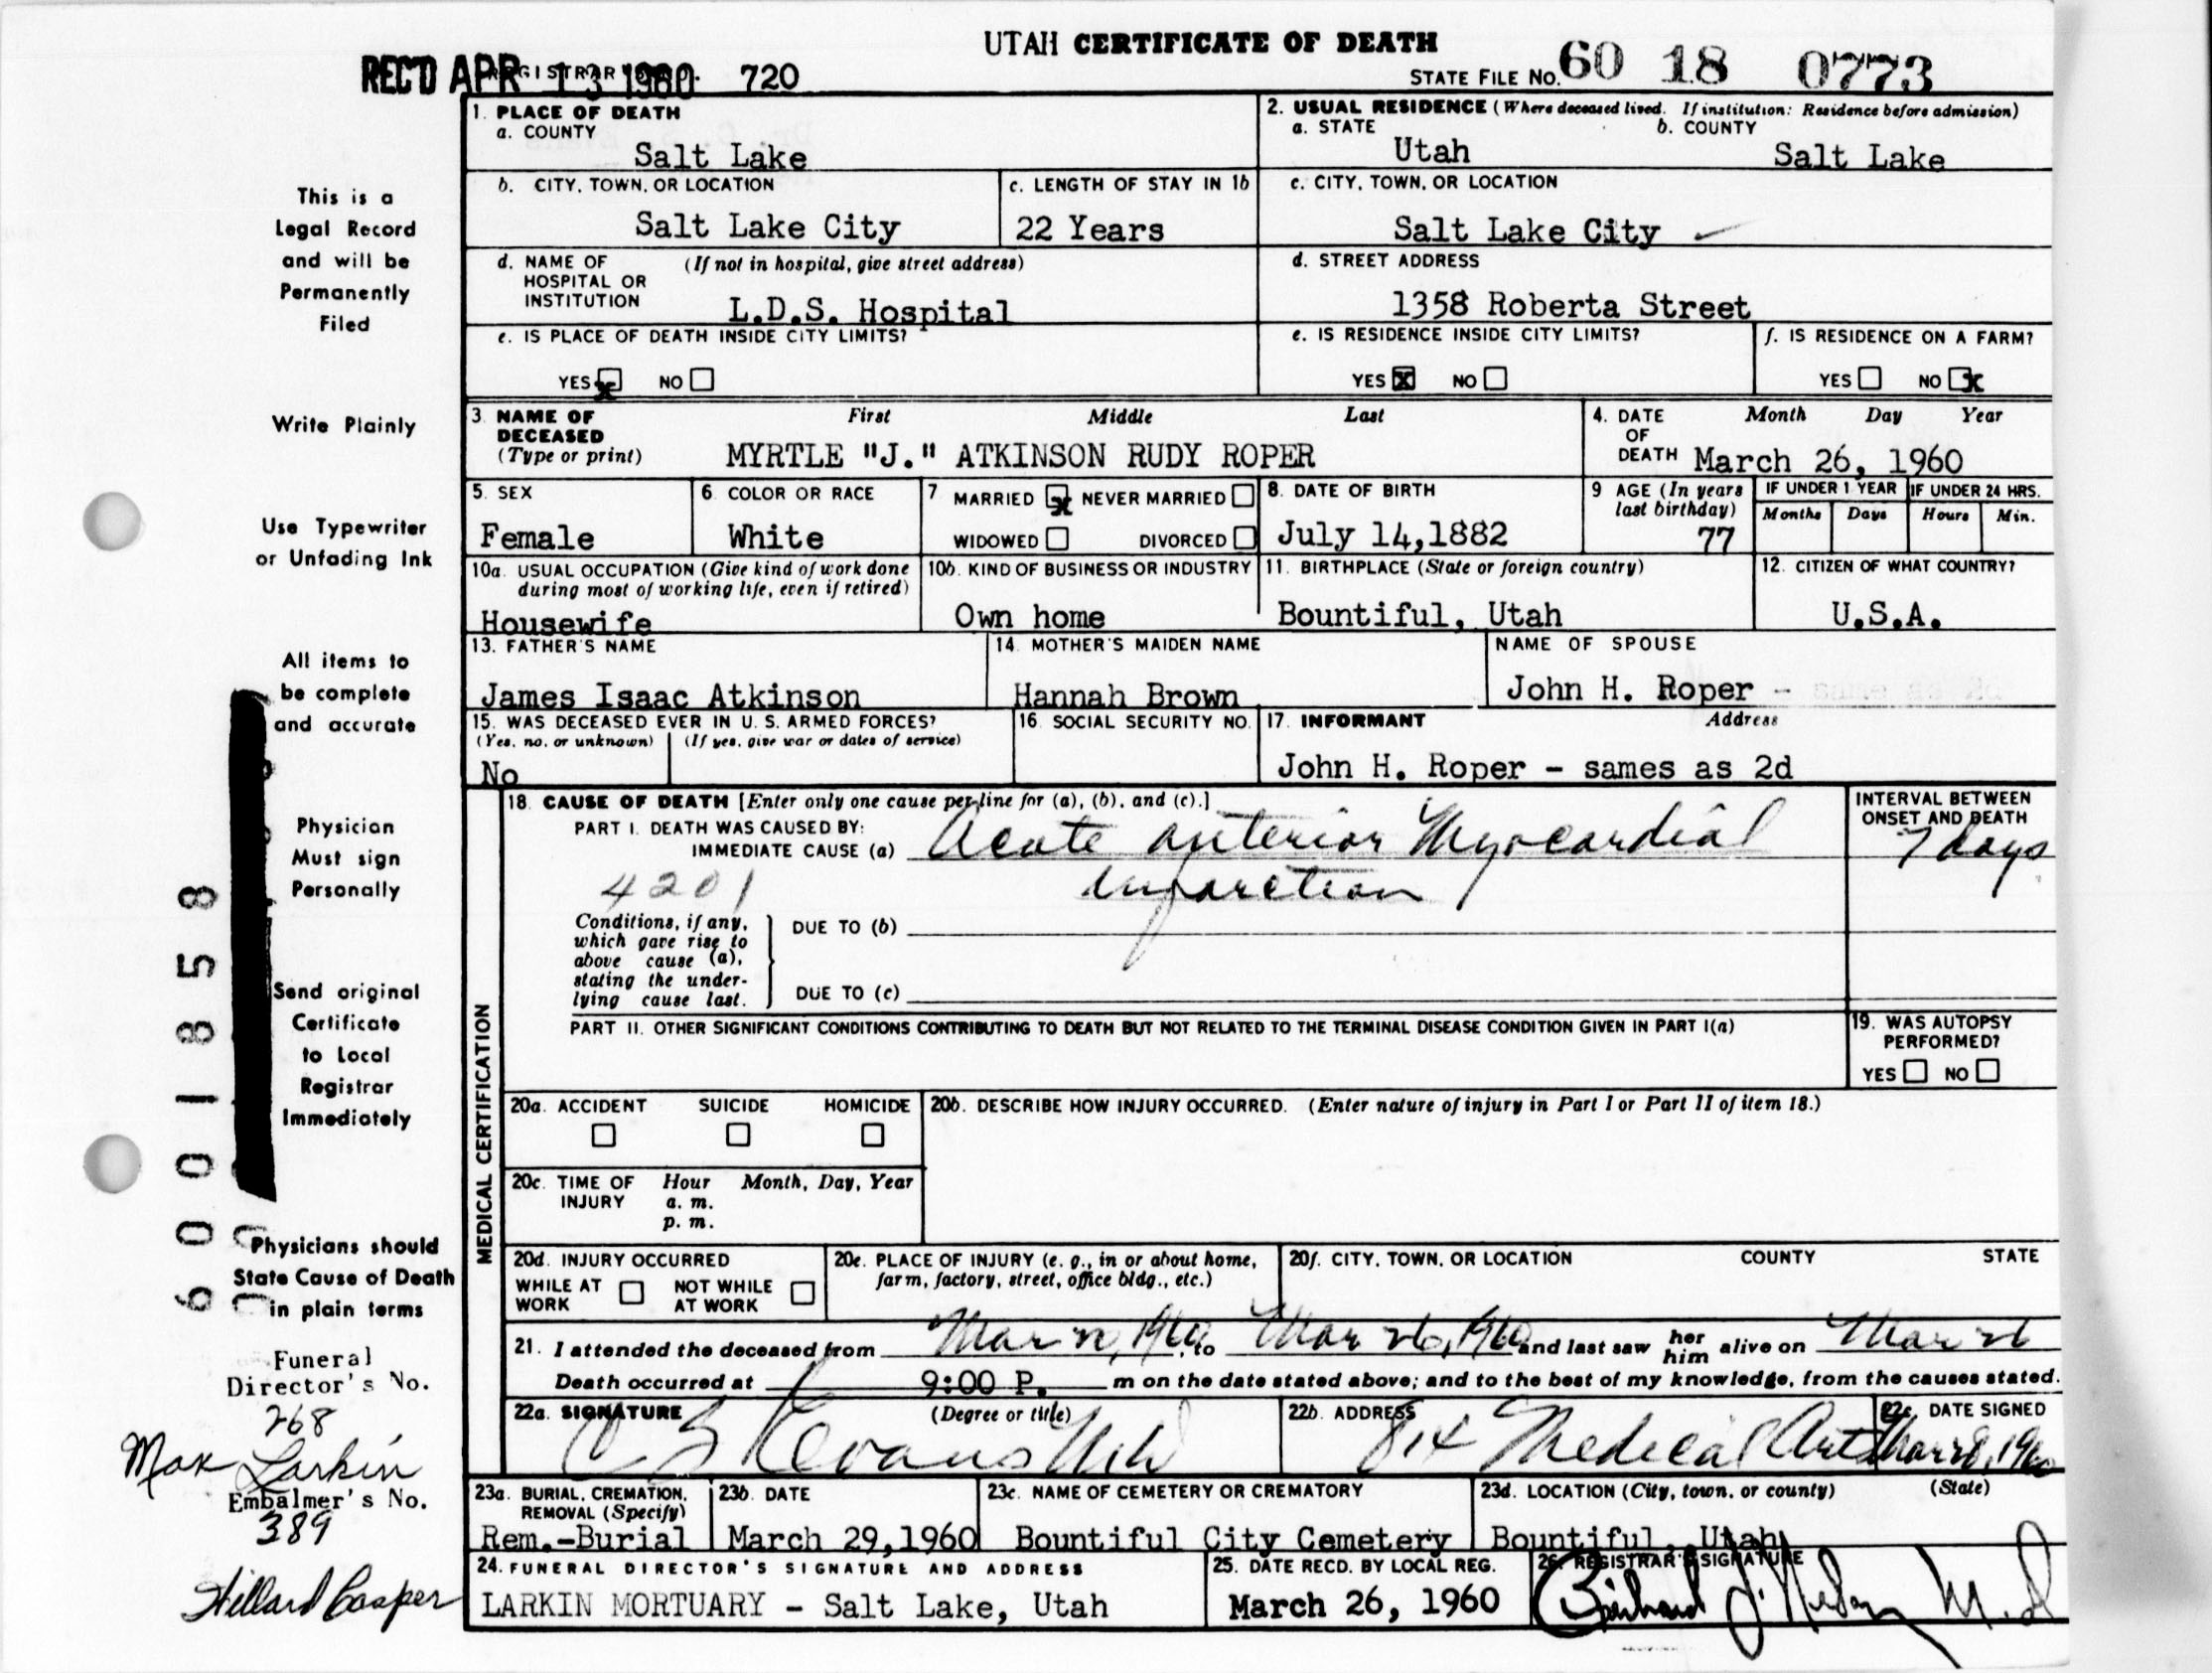 UTAH CERTIFICATE OF DEATH
REC'D APR 13 1960
REGISTRAR'S NO. 720
STATE FILE No. 60 18 0773
1. PLACE OF DEATH
a. COUNTY
Salt Lake
2. USUAL RESIDENCE (Where deceased lived. If institution: Residence before admission)
a. STATE
Utah
b. COUNTY
Salt Lake
b. CITY, TOWN, OR LOCATION
Salt Lake City
c. LENGTH OF STAY IN 1b
22 Years
c. CITY, TOWN, OR LOCATION
Salt Lake City
d. NAME OF HOSPITAL OR INSTITUTION
(If not in hospital, give street address)
L.D.S. Hospital
d. STREET ADDRESS
1358 Roberta Street
e. IS PLACE OF DEATH INSIDE CITY LIMITS?
YES x NO
e. IS RESIDENCE INSIDE CITY LIMITS?
YES x NO
f. IS RESIDENCE ON A FARM?
YES NO x
3. NAME OF DECEASED (Type or print)
First Middle Last
MYRTLE "J." ATKINSON RUDY ROPER
4. DATE OF DEATH
Month Day Year
March 26, 1960
5. SEX
Female
6. COLOR OR RACE
White
7 MARRIED x NEVER MARRIED
WIDOWED DIVORCED
8. DATE OF BIRTH
July 14,1882
9 AGE (In years last birthday)
77
IF UNDER 1 YEAR
Months Days
IF UNDER 24 HRS.
Hours Min.
10a. USUAL OCCUPATION (Give kind of work done
during most of working life, even if retired)
Housewife
10b. KIND OF BUSINESS OR INDUSTRY
Own home
11. BIRTHPLACE (State or foreign country)
Bountiful, Utah
12. CITIZEN OF WHAT COUNTRY?
U.S.A.
13. FATHER'S NAME
James Isaac Atkinson
14. MOTHER'S MAIDEN NAME
Hannah Brown
NAME OF SPOUSE
John H. Roper -
15. WAS DECEASED EVER IN U. S. ARMED FORCES?
(Yes, no, or unknown) (If yes, give war or dates of service)
No
16. SOCIAL SECURITY NO.
17. INFORMANT Address
John H. Roper - sames as 2d
MEDICAL CERTIFICATION
18. CAUSE OF DEATH [Enter only one cause per line for (a), (b), and (c).]
PART I. DEATH WAS CAUSED BY:
IMMEDIATE CAUSE (a) Acute anterior Myocardial
4201 infarction
INTERVAL BETWEEN
ONSET AND DEATH
7 days
Conditions, if any,
which gave rise to
above cause (a),
stating the under-
lying cause last.
DUE TO (b)
DUE TO (c)
PART II. OTHER SIGNIFICANT CONDITIONS CONTRIBUTING TO DEATH BUT NOT RELATED TO THE TERMINAL DISEASE CONDITION GIVEN IN PART I(a)
19. WAS AUTOPSY PERFORMED?
YES NO
20a. ACCIDENT SUICIDE HOMICIDE
20b. DESCRIBE HOW INJURY OCCURRED. (Enter nature of injury in Part I or Part II of item 18.)
20c. TIME OF INJURY
Hour Month, Day, Year
a. m.
p. m.
20d. INJURY OCCURRED
WHILE AT WORK NOT WHILE AT WORK
20e. PLACE OF INJURY (e. g., in or about home,
farm, factory, street, office bldg., etc.)
20f. CITY, TOWN, OR LOCATION COUNTY STATE
21. I attended the deceased from Mar , 1960, to Mar 26, 1960 and last saw her him alive on Mar 26
Death occurred at 9:00 P. m on the date stated above; and to the best of my knowledge, from the causes stated.
22a. SIGNATURE (Degree or title)
C S Evans MD
22b. ADDRESS
814 Medical Arts
22c. DATE SIGNED
Mar 28, 1960
23a. BURIAL, CREMATION,
REMOVAL (Specify)
Rem.-Burial
23b. DATE
March 29,1960
23c. NAME OF CEMETERY OR CREMATORY
Bountiful City Cemetery
23d. LOCATION (City, town, or county) (State)
Bountiful, Utah
24. FUNERAL DIRECTOR'S SIGNATURE AND ADDRESS
LARKIN MORTUARY - Salt Lake, Utah
25. DATE RECD. BY LOCAL REG.
March 26, 1960
26. REGISTRAR'S SIGNATURE
M.D
This is a
Legal Record
and will be
Permanently
Filed
Write Plainly
Use Typewriter
or Unfading Ink
All items to
be complete
and accurate
Physician
Must sign
Personally
Send original
Certificate
to Local
Registrar
Immediately
Physicians should
State Cause of Death
in plain terms
Funeral
Director's No.
268
Max Larkin
Embalmer's No.
389
Hillard Casper
6001858